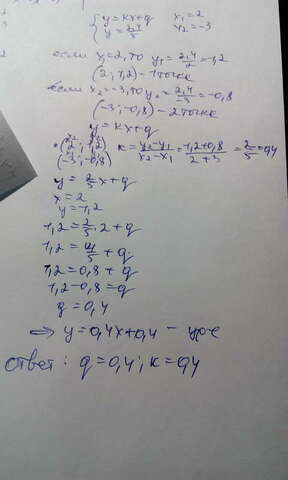 {y = kx+q x₁=2
{y = 2,4/5 x₂=-3
если x₁=2, то y₁ = 2,4/2 = 1,2
(2; 1,2) - 1 точк
если x₂=-3, то y₂ = 2,4/-3 = -0,8
(-3; -0,8) - 2 точк
y = kx+q
(2; 1,2) (-3; -0,8) k = y₂-y₁/x₂-x₁ = 1,2+0,8/2+3 = 2/5 = 0,4
y = 2/5 x+q
x = 2
y = 1,2
1,2 = 2/5 · 2 + q
1,2 = 4/5 + q
1,2 = 0,8 + q
1,2 - 0,8 = q
q = 0,4
⇒ y = 0,4x+0,4 - ур-е
ответ: q = 0,4; k = 0,4